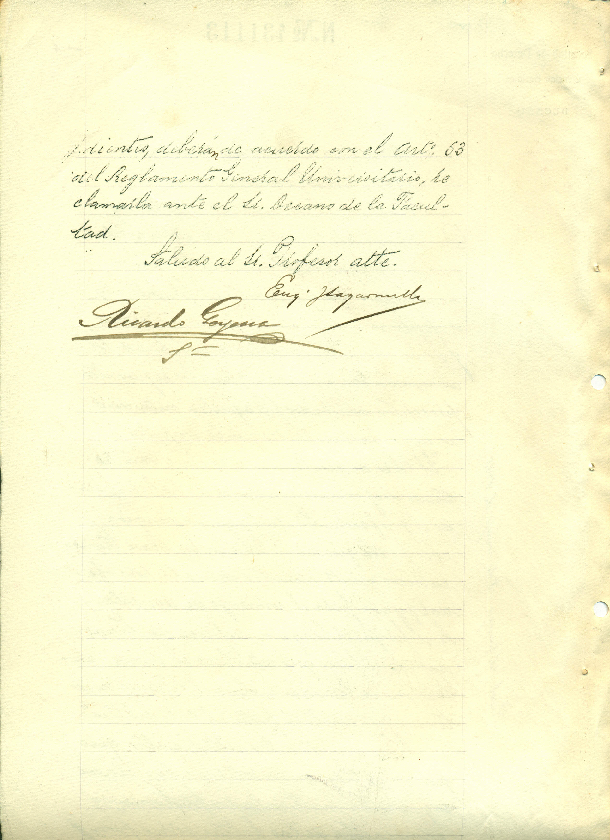 dientes, deberán de acuerdo con el Artº. 53
del Reglamento General Universitario, re
clamarla ante el Sr. Decano de la Facul-
tad.
Saludo al Sr. Profesor atte.
Ricardo Goyena
Sº